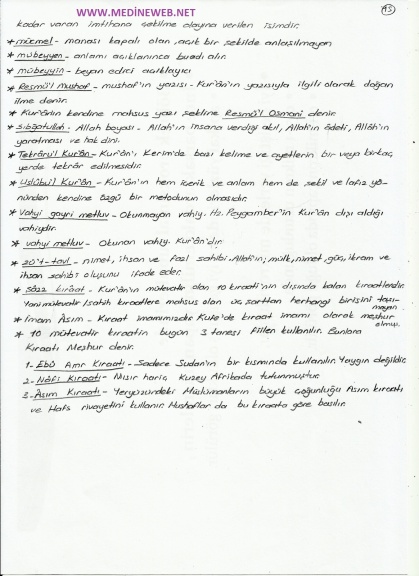 www.MEDINEWEB.NET
15
kadar varan imtihana çekilme olayına verilen isimdir.
* mücmel - manası kapalı olan, açık bir şekilde anlaşılmayan
* mübeyyen - anlamı açıklanınca bu adı alır.
* mübeyyin - beyan edici açıklayıcı
* Resmü'l Mushaf - mushaf'ın yazısı - Kur'ân'ın yazısıyla ilgili olarak doğan
ilme denir.
* Kur'ânın kendine mahsus yazı şekline Resmü'l Osmanî denir.
* Sıbğatullah - Allah boyası - Allah'ın insana verdiği akıl, Allah'ın âdeti, Allâh'ın
yaratması ve hak dini.
* Tekrâru'l Kur'ân - Kur'ân'ı Kerim'de bazı kelime ve ayetlerin bir veya birkaç
yerde tekrar edilmesidir.
* Uslûbu'l Kur'ân - Kur'ân'ın hem içerik ve anlam hem de şekil ve lafız yö-
nünden kendine özgü bir metodunun olmasıdır.
* Vahyi gayri metluv - Okunmayan vahiy. Hz. Peygamber'in Kur'ân dışı aldığı
vahiydir.
* vahyi metluv - Okunan vahiy. Kur'ân'dır.
* zü't-tavl - nimet, ihsan ve fazl sahibi. Allah'ın; mülk, nimet, güç, ikram ve
ihsan sahibi oluşunu ifade eder.
* Şâzz kıraat - Kur'ân'ın mütevatir olan 10 kıraati'nin dışında kalan kıraatlerdir.
Yani mütevatir/sahih kıraatlere mahsus olan üç şarttan herhangi birisini taşı-
mayan
* İmam Âsım - Kıraat imamımızdır. Kufe'de kıraat imamı olarak meşhur
olmuş.
* 10 mütevatir kıraatin bugün 3 tanesi fiilen kullanılır. Bunlara
Kıraati Meşhur denir.
1- Ebû Amr Kıraati - Sadece Sudan'ın bir kısmında kullanılır. Yaygın değildir.
2- Nâfi Kıraati - Mısır hariç Kuzey Afrikada tutunmuştur.
3- Âsım Kıraati - Yeryüzündeki Müslümanların büyük çoğunluğu Asım kıraati
ve Hafs rivayetini kullanır. Mushaflar da bu kıraata göre basılır.